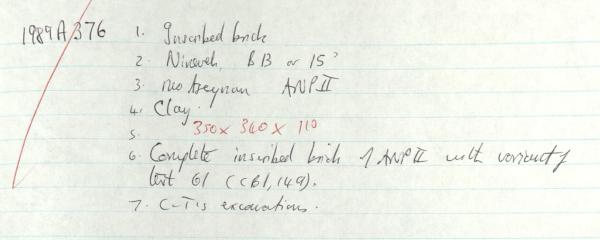 1989A376 1. Inscribed brick
2. Nineveh, BB or 15?
3. neo Assyrian ANP II
4. Clay.
5. 350 x 340 x 110
6. Complete inscribed brick of ANP II with variant of
text 61 (CBI, 149).
7. C-T's excavations.